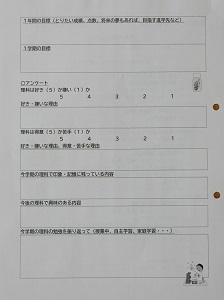 1年間の目標（とりたい成績、点数、将来の夢もあれば、目指す進学先など）
1学期の目標
□アンケート
理科は好き（5）か嫌い（1）か
5 4 3 2 1
好き・嫌いな理由
理科は得意（5）か苦手（1）か
5 4 3 2 1
好き・嫌いな理由、得意・苦手な理由
今学期の理科で印象・記憶に残っている内容
今後の理科で興味のある内容
今学期の理科の勉強を振り返って（授業中、自主学習、家庭学習・・・）